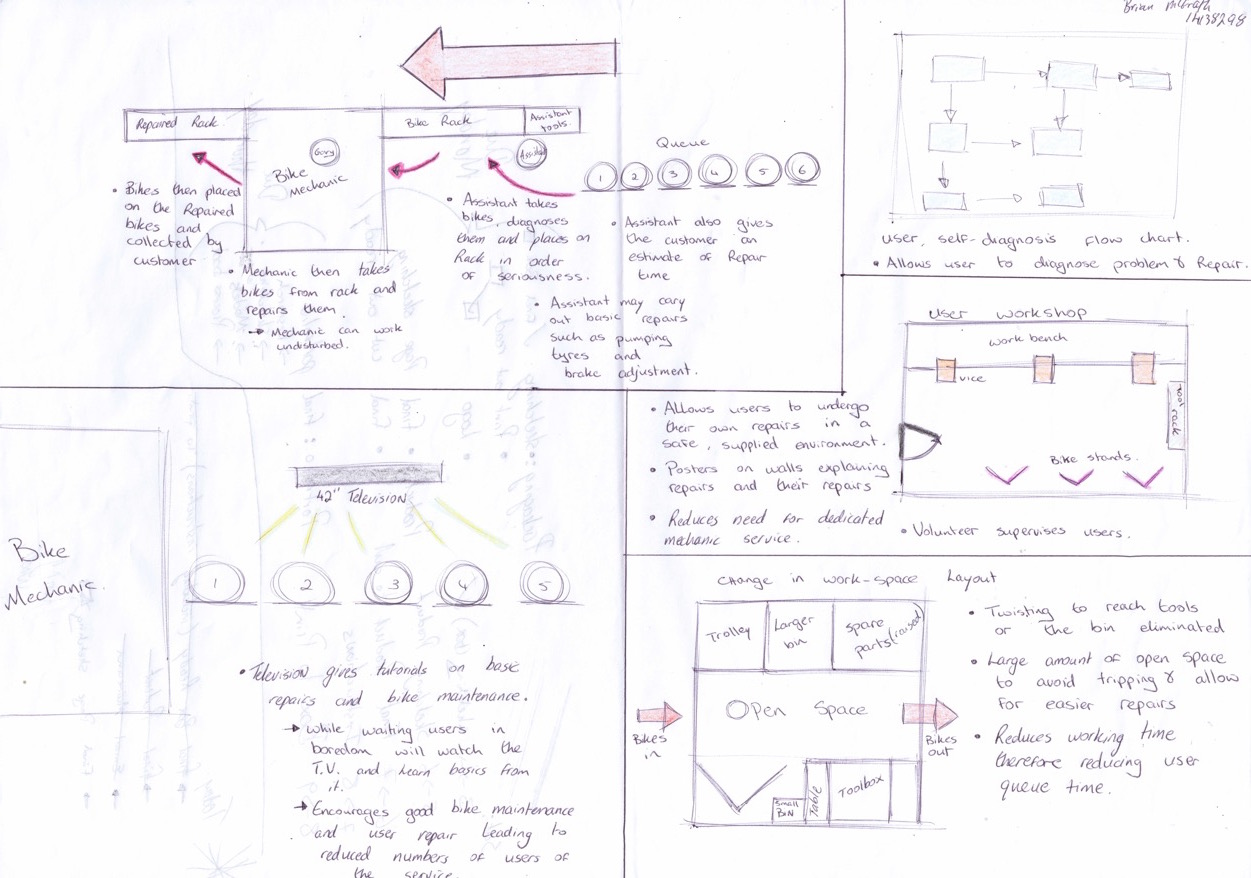 Brian McGrath
14138298
Repaired Rack
Gary
Bike
Mechanic
Bike Rack
Assistant
tools.
Assistant
Queue
1 2 3 4 5 6
• Bikes then placed
on the Repaired
bikes and
collected by
customer
• Mechanic then takes
bikes from rack and
repairs them.
→ Mechanic can work
undisturbed.
• Assistant takes
bikes, diagnoses
them and places on
Rack in order
of seriousness.
• Assistant also gives
the customer an
estimate of Repair
time
• Assistant may cary
out basic repairs
such as pumping
tyres and
brake adjustment.
user, self-diagnosis flow chart.
• Allows user to diagnose problem & Repair.
user workshop
work bench
vice
tool rack
Bike stands.
• Allows users to undergo
their own repairs in a
safe, supplied environment.
• Posters on walls explaining
repairs and their repairs
• Reduces need for dedicated
mechanic service.
• Volunteer supervises users.
42" Television
Bike
Mechanic.
1 2 3 4 5
• Television gives tutorials on base
repairs and bike maintenance.
→ while waiting users in
boredom will watch the
T.V. and learn basics from
it.
→ Encourages good bike maintenance
and user repair leading to
reduced numbers of users of
the service.
Change in work-space Layout
Trolley
Larger
bin
spare
parts (raised)
Open Space
Bikes
in
Bikes
out
Small
BIN
Table
Toolbox
• Twisting to reach tools
or the bin eliminated
• Large amount of open space
to avoid tripping & allow
for easier repairs
• Reduces working time
therefore reducing user
queue time.